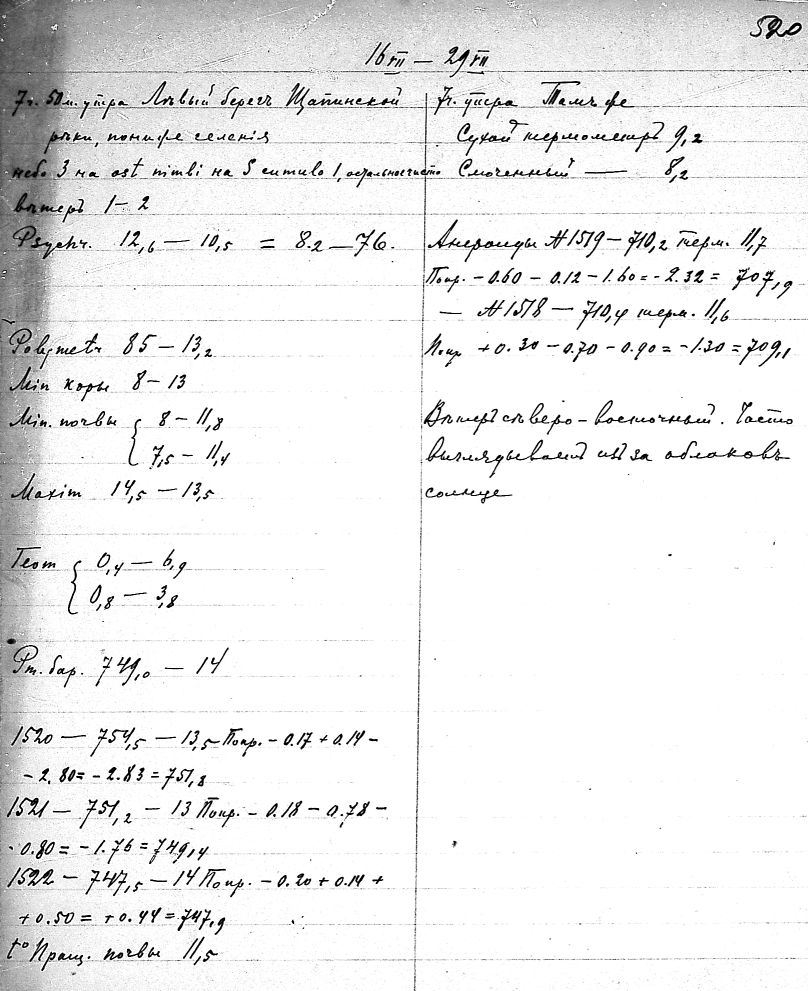 520
16 VII — 29 VII
7ч. 50м. утра Лѣвый берегъ Щапинской
рѣки, пониже селенія
небо 3 на ost nimbi на S cumulo 1, остальное чисто
вѣтеръ 1–2
Psychr. 12,6 — 10,5 = 8.2 — 76.
Polymetr 85 — 13,2
Min коры 8 — 13
Min. почвы { 8 — 11,8
7,5 — 11,4
Maxim 14,5 — 13,5
Геот { 0,4 — 6,9
0,8 — 3,8
Рт. бар. 749,0 — 14
1520 — 754,5 — 13,5 Попр. - 0.17 + 0.14 -
- 2.80 = - 2.83 = 751,8
1521 — 751,2 — 13 Попр. - 0.18 - 0.78 -
- 0.80 = - 1.76 = 749,4
1522 — 747,5 — 14 Попр. - 0.20 + 0.14 +
+ 0.50 = + 0.44 = 747,9
t° Пращ. почвы 11,5
7ч. утра Тамъ же
Сухой термометръ 9,2
Смоченный — 8,2
Анероиды № 1519 — 710,2 терм. 11,7
Попр. - 0.60 - 0.12 - 1.60 = - 2.32 = 707,9
— № 1518 — 710,4 терм. 11,6
Попр + 0.30 - 0.70 - 0.90 = - 1.30 = 709,1
Вѣтеръ сѣверо-восточный. Часто
выглядываетъ изъ за облаковъ
солнце